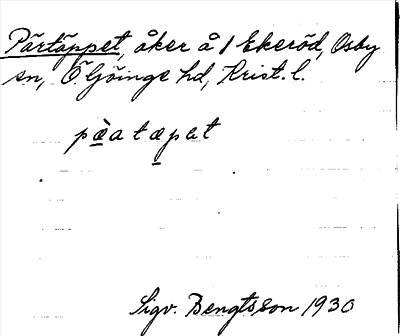 Pärtäppet, åker å 1 Ekeröd, Osby
sn, Ö. Göinge hd, Krist. l.
pæ̀atæpət
Sigv. Bengtsson 1930